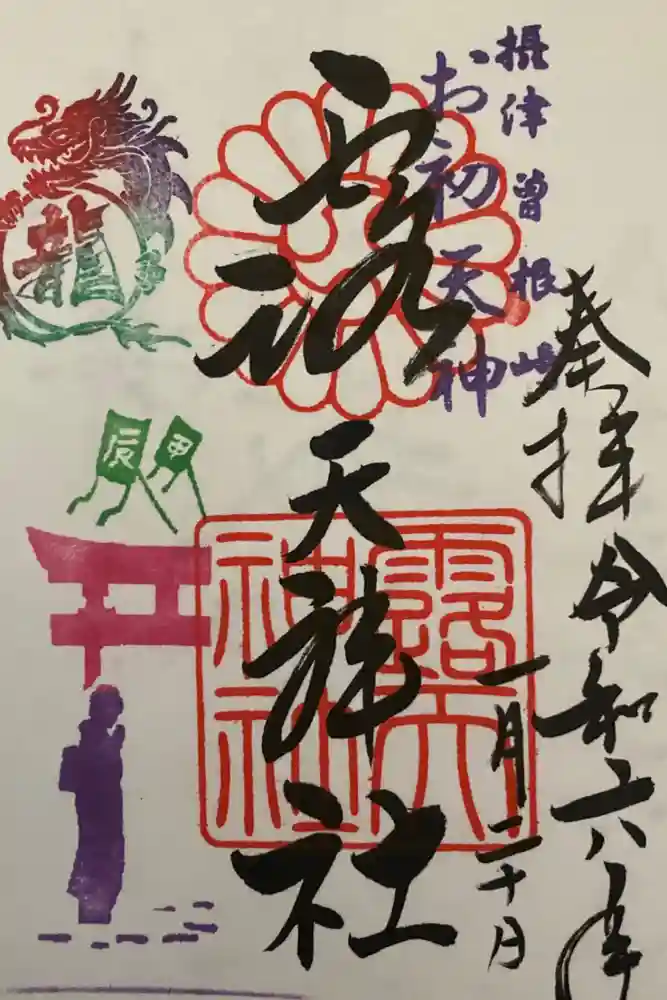 奉拝 令和六年
一月二十日
摂津 曽根崎
お初天神
露天神社
露天
神社
龍
甲
辰